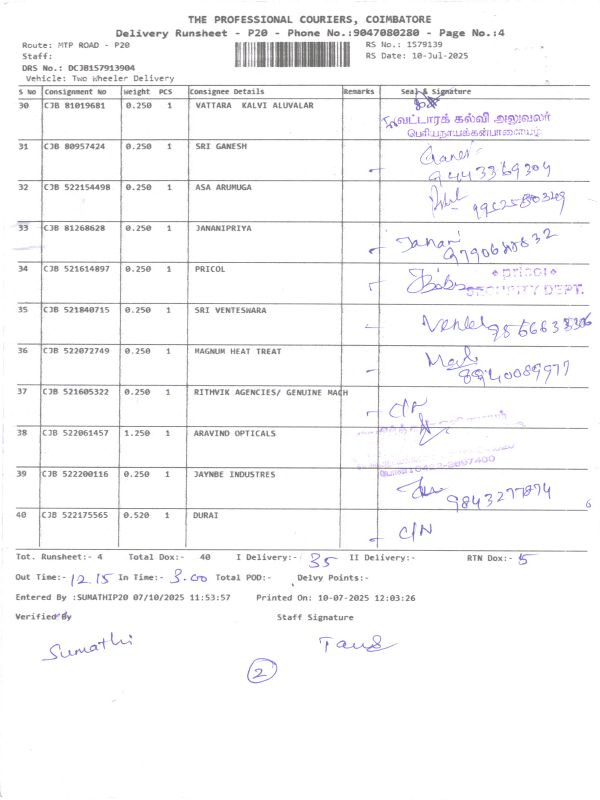 THE PROFESSIONAL COURIERS, COIMBATORE
Delivery Runsheet - P20 - Phone No.:9047080280 - Page No.:4
Route: MTP ROAD - P20 RS No.: 1579139
Staff: RS Date: 10-Jul-2025
DRS No.: DCJB157913904
Vehicle: Two Wheeler Delivery
S No Consignment No Weight PCS Consignee Details Remarks Seal & Signature
30 CJB 81019681 0.250 1 VATTARA KALVI ALUVALAR
வட்டாரக் கல்வி அலுவலர்
பெரியநாயக்கன்பாளையம்
31 CJB 80957424 0.250 1 SRI GANESH
Ganes
9443369304
32 CJB 522154498 0.250 1 ASA ARUMUGA
33 CJB 81268628 0.250 1 JANANIPRIYA
Janani
34 CJB 521614897 0.250 1 PRICOL
pricol
SECURITY DEPT.
35 CJB 521840715 0.250 1 SRI VENTESWARA
36 CJB 522072749 0.250 1 MAGNUM HEAT TREAT
8940089977
37 CJB 521605322 0.250 1 RITHVIK AGENCIES/ GENUINE MACH
C/N
38 CJB 522061457 1.250 1 ARAVIND OPTICALS
39 CJB 522200116 0.250 1 JAYNBE INDUSTRES
9843277874
6
40 CJB 522175565 0.520 1 DURAI
C/N
Tot. Runsheet:- 4 Total Dox:- 40 I Delivery:- 35 II Delivery:- RTN Dox:- 5
Out Time:- 12.15 In Time:- 3.00 Total POD:- Delvy Points:-
Entered By :SUMATHIP20 07/10/2025 11:53:57 Printed On: 10-07-2025 12:03:26
Verified By Staff Signature
Sumathi
2